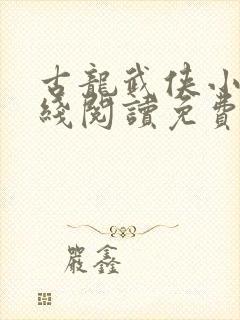 古龍武俠小
綫閱讀免費
嚴鑫